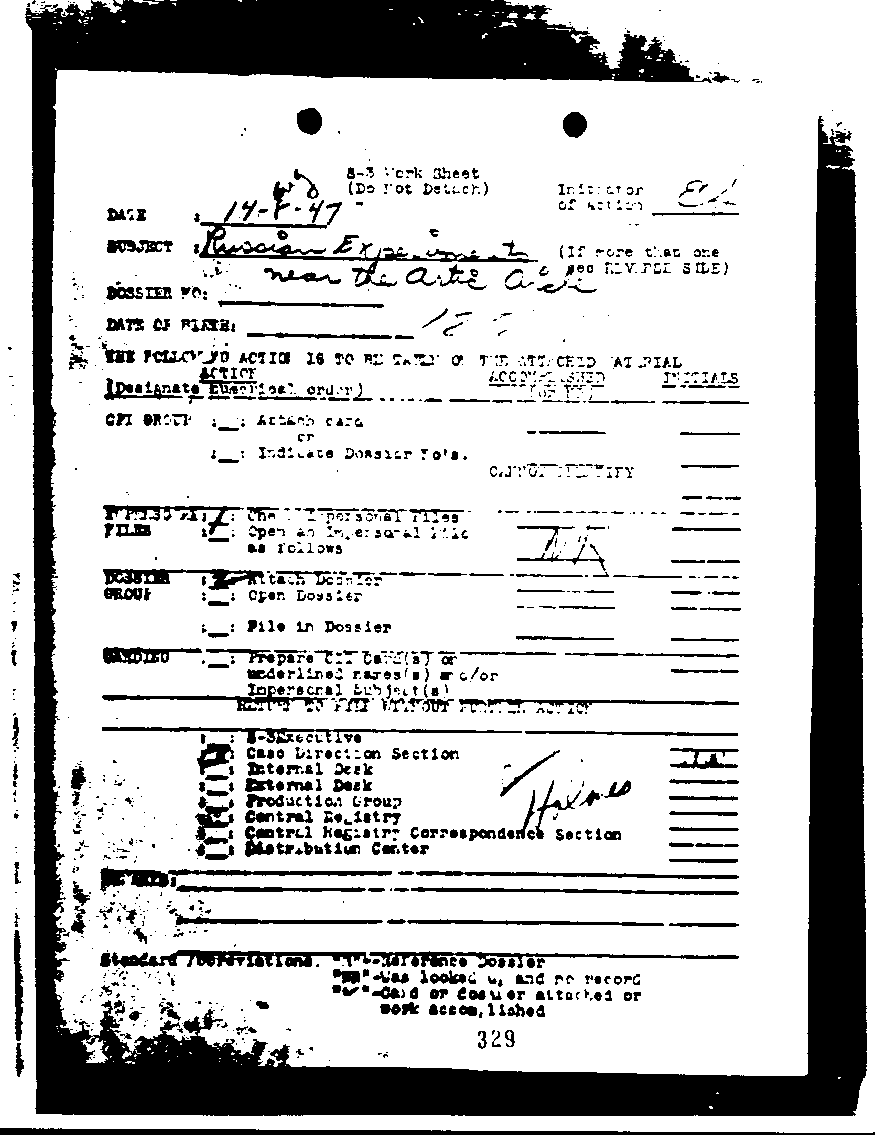 S-3 Work Sheet
(Do Not Detach)
Initiator
of Action
DATE : 14-8-47
SUBJECT : Russian Experiments (If more that one
near the Artic Circle see REVERSE SIDE)
DOSSIER NO:
DATE OF BIRTH:
THE FOLLOWING ACTION IS TO BE TAKEN ON THE ATTACHED MATERIAL
ACTION ACCOMPLISHED INITIALS
(Designate Numerical order)
CPI GROUP :__: Attach card
or
:__: Indicate Dossier No's.
CANNOT IDENTIFY
IMPERSONAL :__: Check Impersonal Files
FILES :__: Open an Impersonal File
as follows
DOSSIER :__: Attach Dossier
GROUP :__: Open Dossier
:__: File in Dossier
CARDING :__: Prepare Card(s) on
underlined names(s) and/or
Impersonal Subject(s)
RETURN TO FILE WITHOUT FURTHER ACTION
:__: S-3 Executive
:__: Case Direction Section
:__: Internal Desk
:__: External Desk
:__: Production Group
:__: Central Registry
:__: Central Registry Correspondence Section
:__: Distribution Center
Holmes
REMARKS:
Standard Abbreviations. -Reference Dossier
"NR"-Was looked up and no record
"✓"-Card or dossier attached or
work accomplished
329